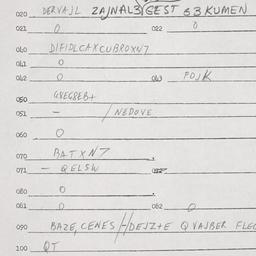 020 DERVAJL ZAJNAL3 (GEST 63 KUMEN
021 0 022 0
040 DIFIDLCAXCUBROXN7
041 0
042 0 043 POJK
050 GVEGBEB+
051 - / NEDOVE
060 0
070 BATXN7
071 - QELSW 072
080 0
081 0 082 0
090 BAZE, CENES / DEJZ+E QVAJBER FLEG
100 QT